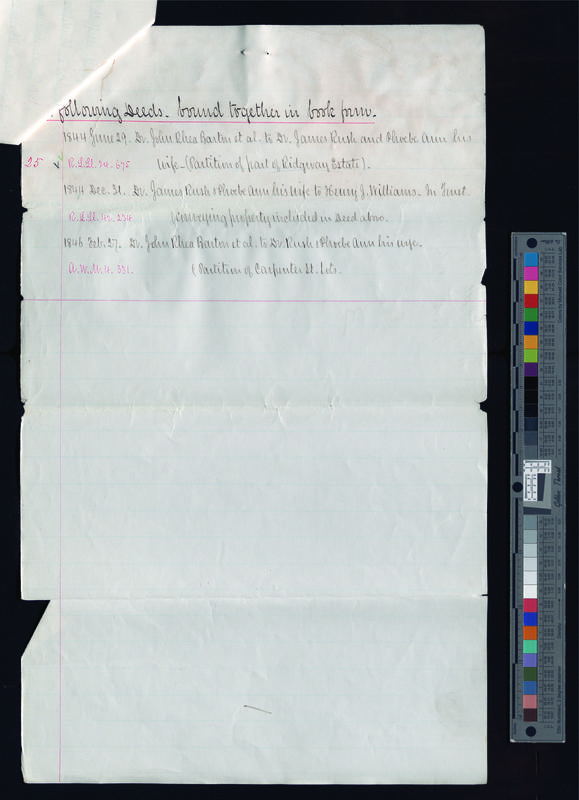 following Deeds. bound together in book form.
1844 June 29. Dr. John Rhea Barton et al. to Dr. James Rush and Phoebe Ann his
25 ✓ R.L.L. 24. 675 Wife (Partition of part of Ridgway Estate).
1844 Dec. 31. Dr. James Rush & Phoebe Ann his Wife to Henry J. Williams. In Trust
R.L.L. 234 (Conveying property included in Deed above.
1846 Feb. 27. Dr. John Rhea Barton et al. to Dr. Rush & Phoebe Ann his wife.
A.W.M. 4. 331. (Partition of Carpenter St. Lots.